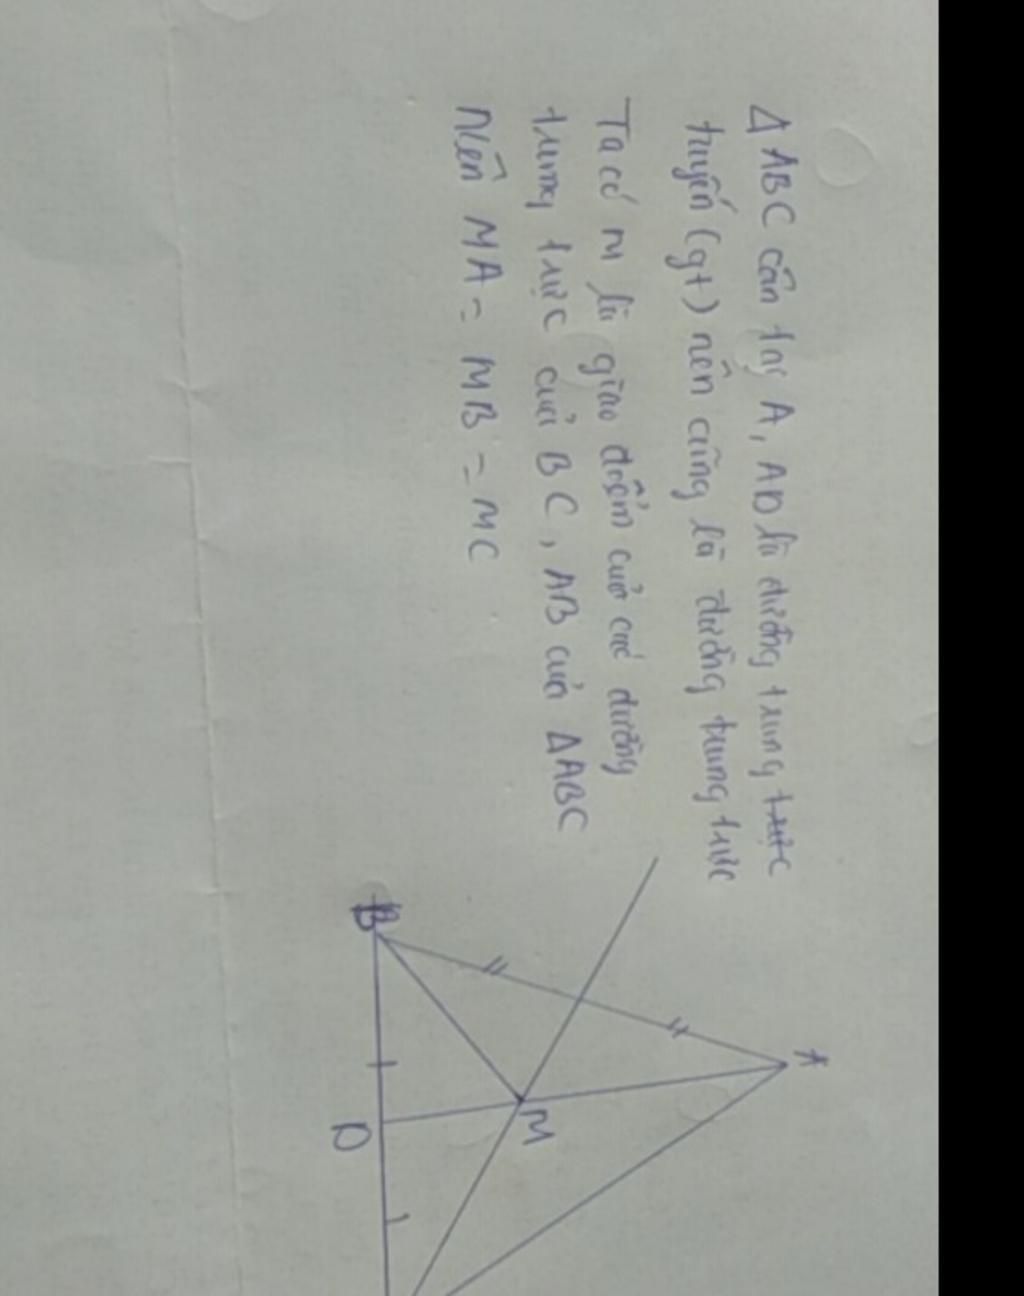 Δ ABC cân tại A, AD là đường trung trực
tuyến (gt) nên cũng là đường trung trực
Ta có M là giao điểm của các đường
trung trực của BC, AB của ΔABC
Nên MA = MB = MC
A
B
M
D